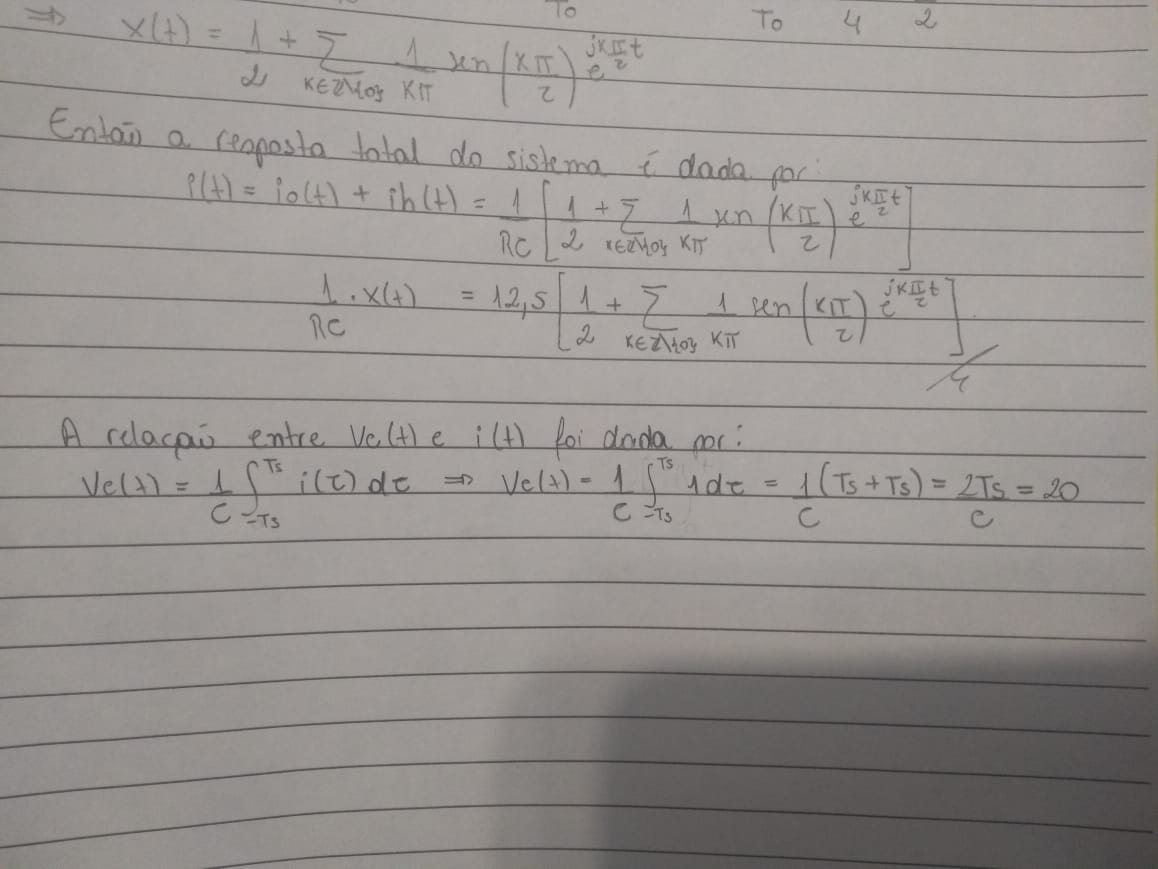 To To 4 2
⇒ x(t) = 1/2 + Σ_{K∈Z\{0}} 1/Kπ sen(Kπ/2) e^{jKπ/2 t}
Então a resposta total do sistema é dada por:
i(t) = io(t) + ih(t) = 1/RC [1/2 + Σ_{K∈Z\{0}} 1/Kπ sen(Kπ/2) e^{jKπ/2 t}]
1/RC . x(t) = 12,5 [1/2 + Σ_{K∈Z\{0}} 1/Kπ sen(Kπ/2) e^{jKπ/2 t}]
A relação entre Vc(t) e i(t) foi dada por:
Vc(t) = 1/C ∫_{-Ts}^{Ts} i(τ) dτ ⇒ Vc(t) = 1/C ∫_{-Ts}^{Ts} 1dτ = 1/C (Ts + Ts) = 2Ts/C = 20